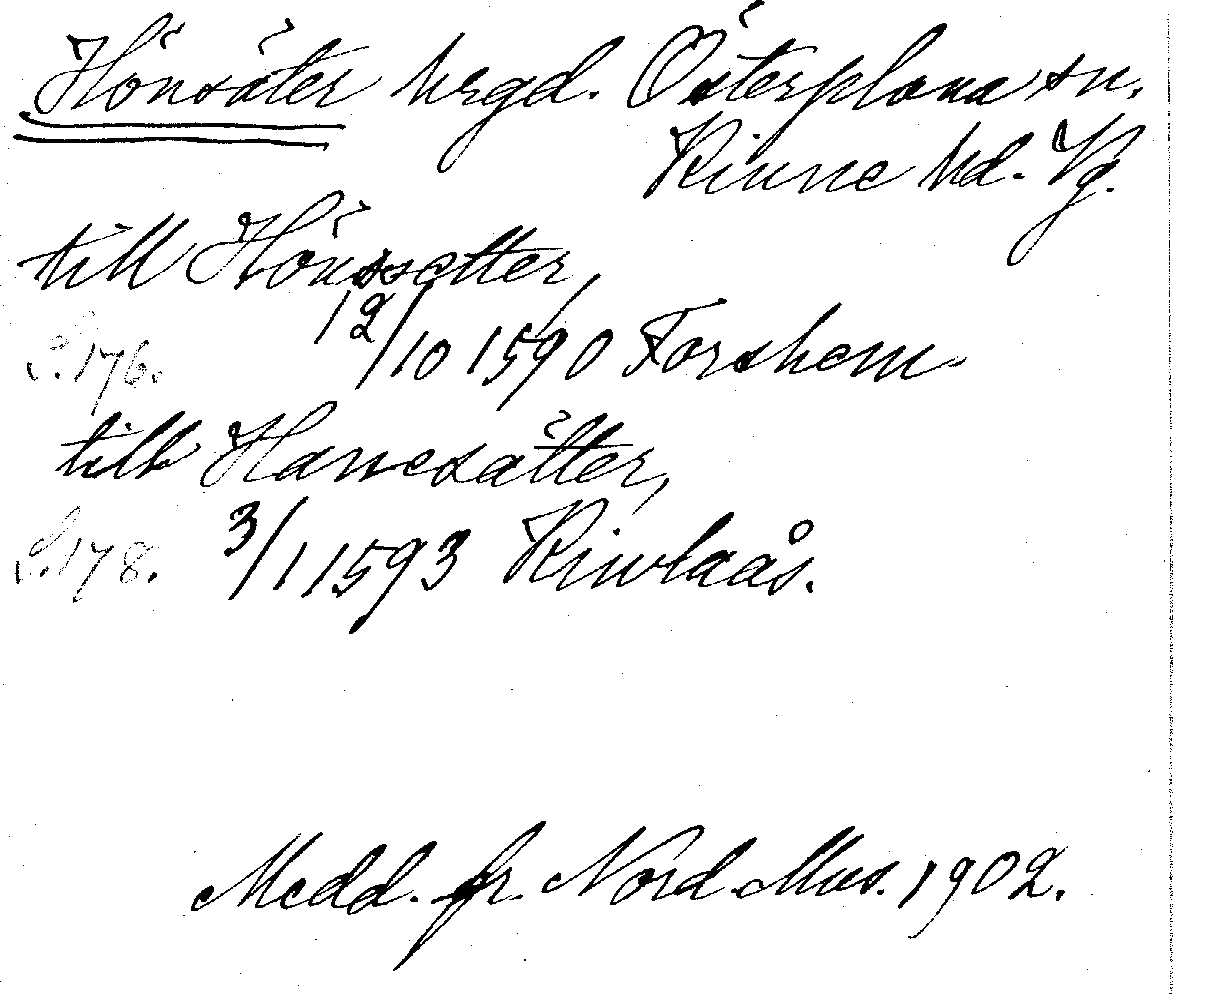 Hönsäter hrgd. Österplana sn.
Kinne hd. Vg.
till Hönssätter,
12/10 1590 Forshem.
S. 176.
till Hanesätter,
S. 178. 3/1 1593 Kinvlaås.
Medd. fr. Nord. Mus. 1902.